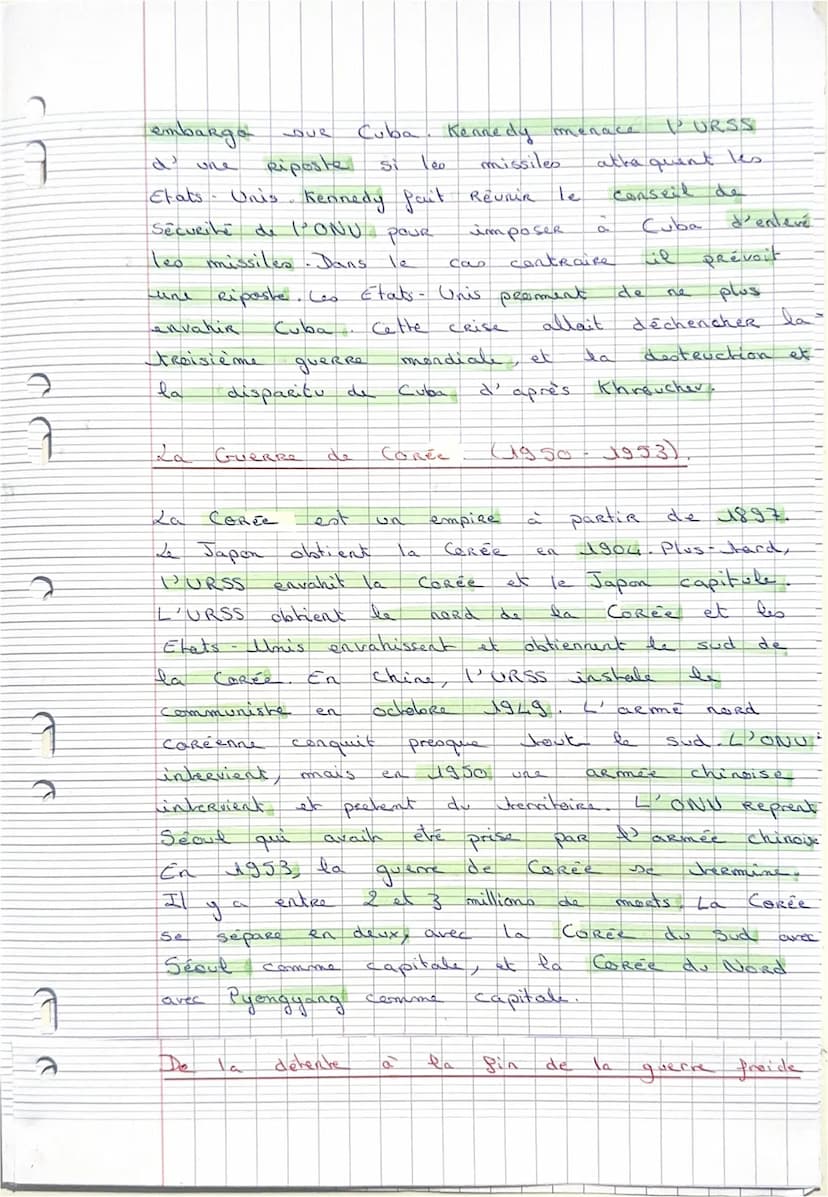 embargo sur Cuba. Kennedy menace l'URSS
d'une riposte si les missiles attaquent les
Etats-Unis. Kennedy fait réunir le conseil de
sécurité de l'ONU pour imposer à Cuba d'enlevé
les missiles. Dans le cas contraire il prévoit
une riposte. Les Etats-Unis prennent de ne plus
envahir Cuba. Cette crise allait déchencher la
troisième guerre mondiale, et la destruction et
la disparitu de Cuba d'après Khrouchev.
La Guerre de Corée. (1950-1953).
La Corée est un empire à partir de 1897.
Le Japon obtient la Corée en 1904. Plus-tard,
l'URSS envahit la Corée et le Japon capitule.
L'URSS obtient le nord de la Corée et les
Etats-Unis envahissent et obtiennent le sud de
la Corée. En Chine, l'URSS instale le
communiste en octobre 1949. L'armé nord
coréenne conquit presque tout le sud. L'ONU
intervient, mais en 1950 une armée chinoise
intervient et prétent du territoire. L'ONU reprent
Séoul qui avait été prise par l'armée chinoise
En 1953, la guerre de Corée se termine.
Il y a entre 2 et 3 millions de morts. La Corée
se sépare en deux, avec la Corée du Sud avec
Séoul comme capitale, et la Corée du Nord
avec Pyongyang comme capitale.
De la détente à la fin de la guerre froide